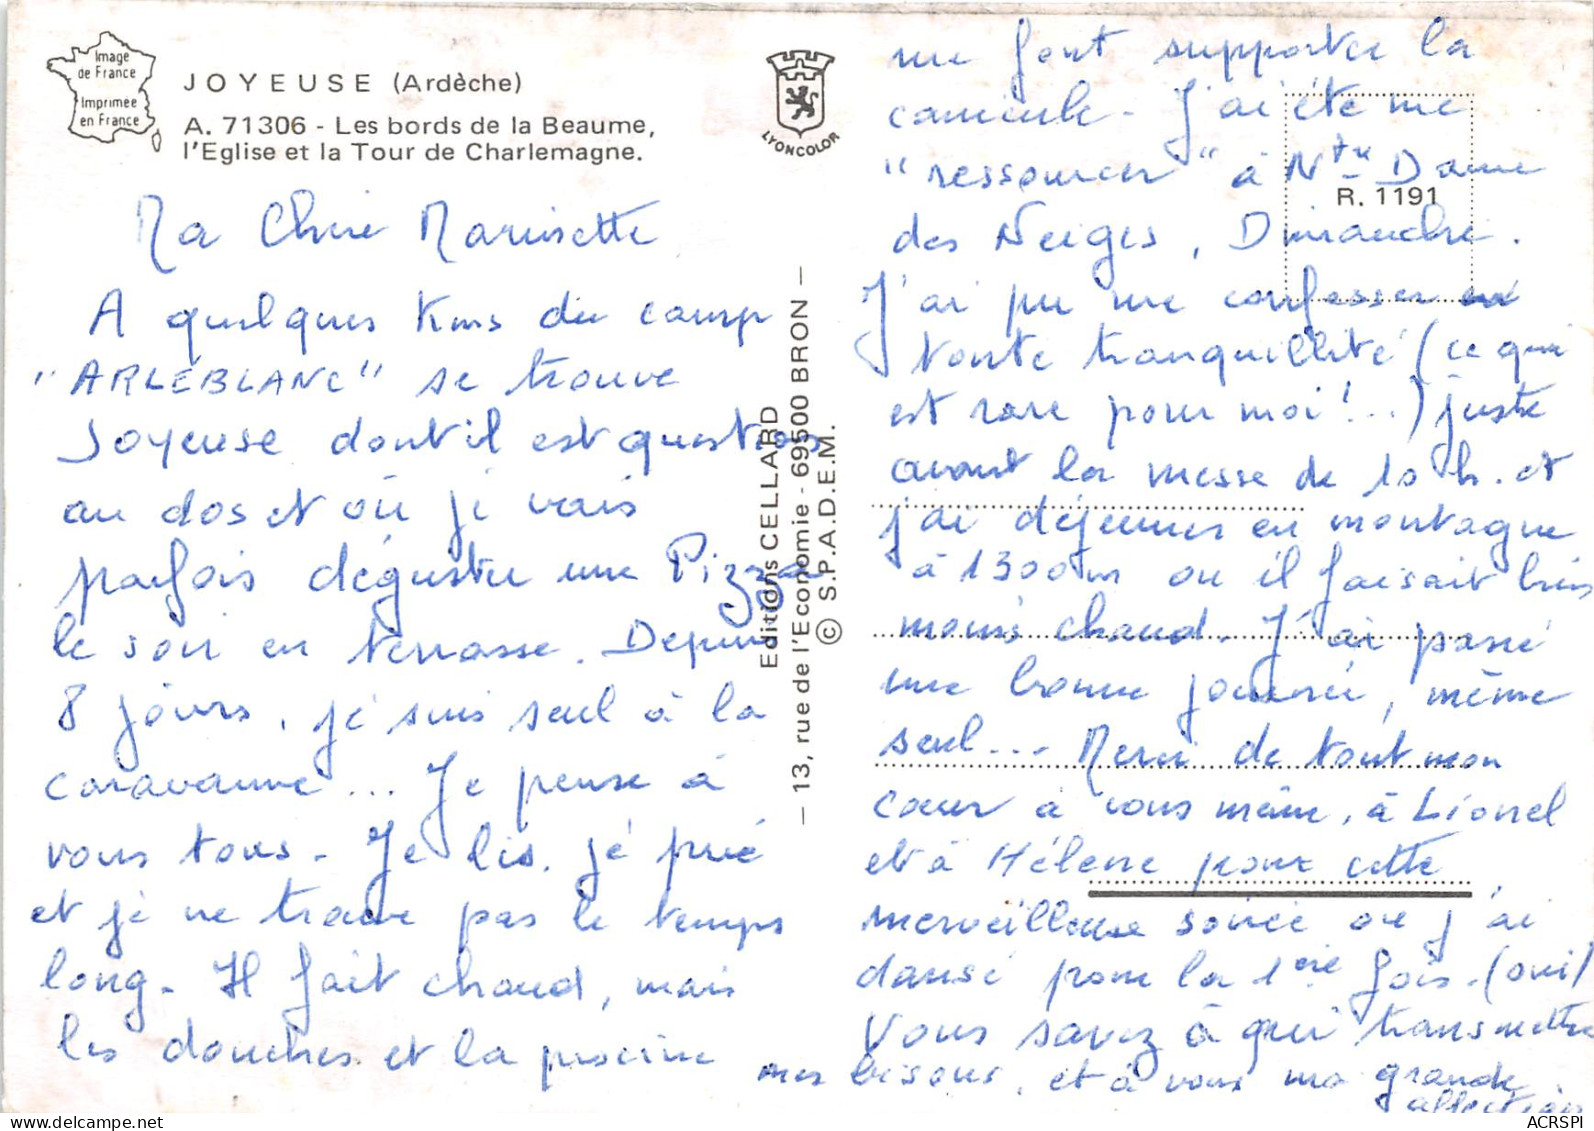 Image
de France
Imprimée
en France
JOYEUSE (Ardèche)
A. 71306 - Les bords de la Beaume,
l'Eglise et la Tour de Charlemagne.
LYONCOLOR
R. 1191
Editions CELLARD
— 13, rue de l'Economie - 69500 BRON —
© S.P.A.D.E.M.
Ma Chère
A quelques Kms du camp
"ARLEBLANC" se trouve
Joyeuse dont il est question
au dos et où je vais
parfois déguster une Pizza
le soir en terrasse. Depuis
8 jours, je suis seul à la
caravane... Je pense à
vous tous - Je lis, je prie
et je ne trouve pas le temps
long - Il fait chaud, mais
les douches et la piscine
me font supporter la
canicule - J'ai été me
"ressourcer" à Ntre Dame
des Neiges, Dimanche.
J'ai pu me confesser en
toute tranquillité (ce qui
est rare pour moi!...) juste
avant la messe de 10 h. et
j'ai déjeuner en montagne
à 1300 m ou il faisait bien
moins chaud. J'ai passé
une bonne journée, même
seul... Merci de tout mon
cœur à vous même, à Lionel
et à Hélène pour cette
merveilleuse soirée ou j'ai
dansé pour la 1ère fois. (oui!)
Vous savez à qui transmettre
mes bisous, et à vous ma grande
affection
ACRSPI